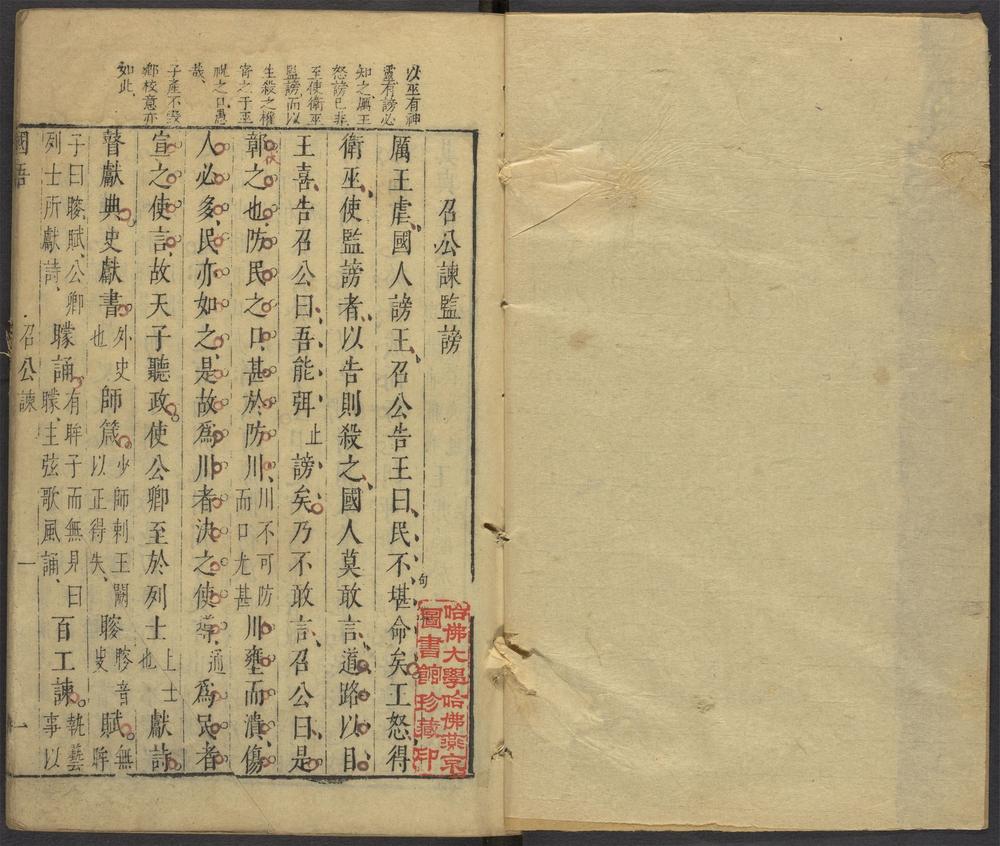 以巫有神
靈有謗必
知之厲王
怒謗已非
至使衛巫
監謗而以
生殺之權
寄之于巫
祝之口愚
哉
子產不毀
鄉校意亦
如此
召公諫監謗
厲王虐國人謗王召公告王曰民不堪命矣王怒得
句
衛巫使監謗者以告則殺之國人莫敢言道路以目
王喜告召公曰吾能弭止謗矣乃不敢言召公曰是
鄣之也防民之口甚於防川川不可防而口尤甚川壅而潰傷
人必多民亦如之是故為川者決之使導通為民者
宣之使言故天子聽政使公卿至於列士上士也獻詩
瞽獻典史獻書外史也師箴少師刺王闕以正得失瞍瞍音叟賦無眸
子曰瞍賦公卿列士所獻詩矇誦有眸子而無見曰矇主弦歌風誦百工諫執藝事以
國語
召公諫
一
一
哈佛大學哈佛燕京
圖書館珍藏印